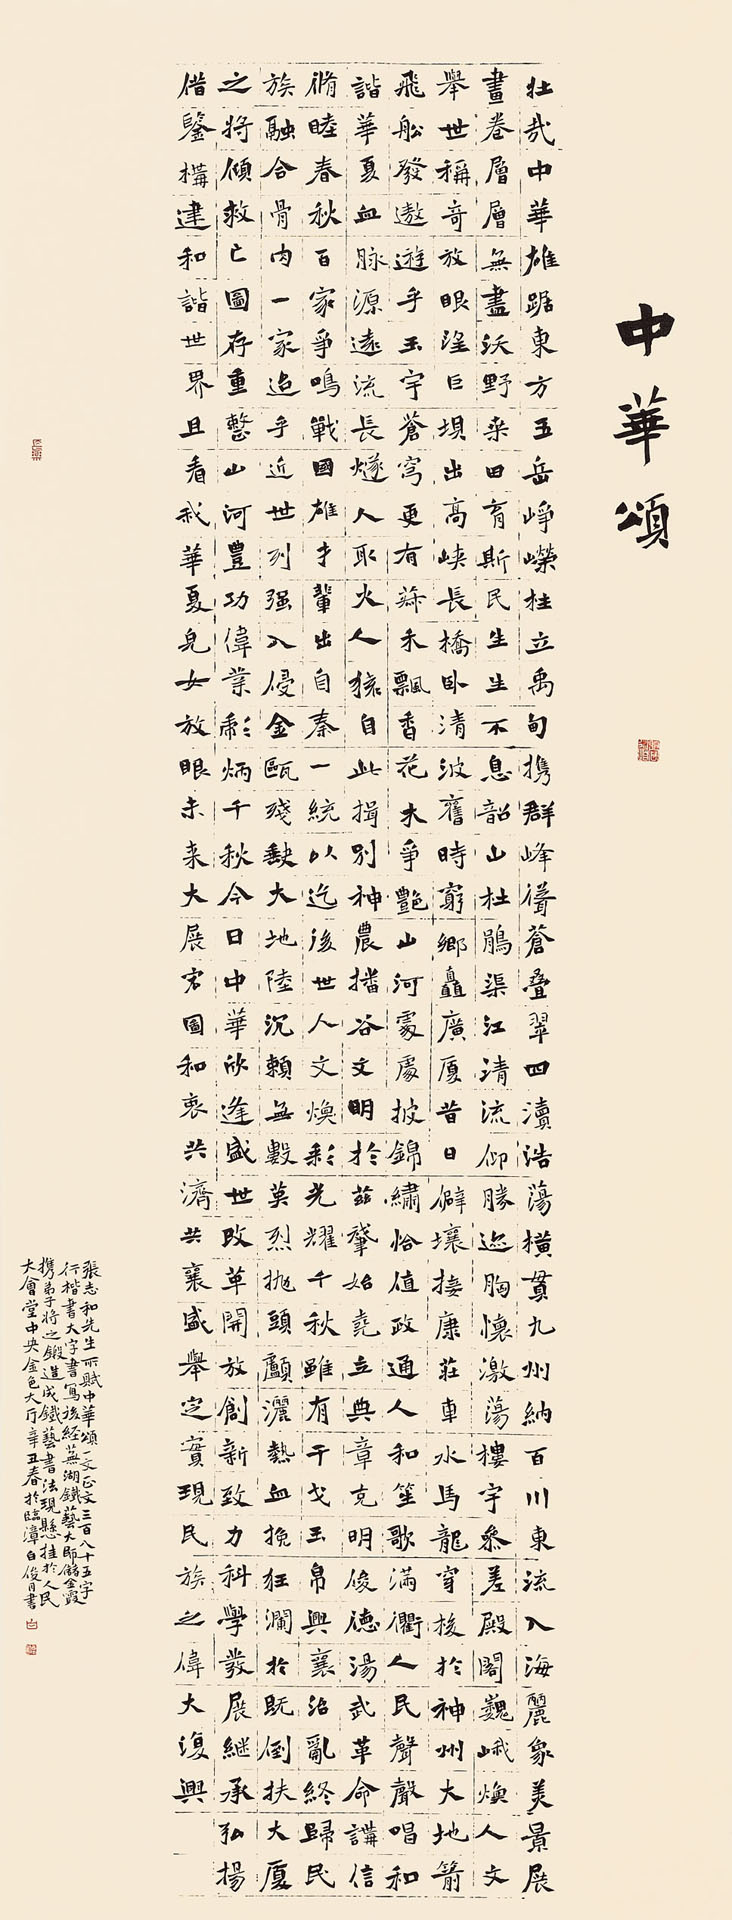 中華頌
壯哉中華雄踞東方五岳崢嶸柱立禹甸攜群峰聳蒼疊翠四瀆浩蕩橫貫九州納百川東流入海麗象美景展
畫卷層層無盡沃野桑田育斯民生生不息韶山杜鵑渠江清流仰勝迹胸懷激蕩樓宇參差殿閣巍峨煥人文
舉世稱奇放眼望巨壩出高峽長橋卧清波舊時窮鄉矗廣厦昔日僻壤接康莊車水馬龍穿梭於神州大地箭
飛船發遨遊乎玉宇蒼穹更有蒜禾飄香花木爭艷山河處處披錦繡恰值政通人和笙歌滿衢人民聲聲唱和
諧華夏血脉源遠流長燧人取火人猿自此揖別神農播谷文明於兹肇始堯立典章克明俊德湯武革命講信
脩睦春秋百家爭鳴戰國雄才輩出自秦一統以迄後世人文煥彩光耀千秋雖有干戈玉帛興衰治亂終歸民
族融合骨肉一家迨乎近世列强入侵金甌殘缺大地陸沉賴無數英烈抛頭顱灑熱血挽狂瀾於既倒扶大厦
之將傾救亡圖存重整山河豐功偉業彪炳千秋今日中華欣逢盛世改革開放創新致力科學發展繼承弘揚
借鑒構建和諧世界且看我華夏兒女放眼未来大展宏圖和衷共濟共襄盛舉定實現民族之偉大復興
張志和先生所賦中華頌一文正文三百八十五字
行楷書大字書寫後經蕪湖鐵藝大師儲金霞
攜弟子將之鍛造成鐵藝書法現懸挂於人民
大會堂中央金色大厅辛丑春於臨漳白俊月書